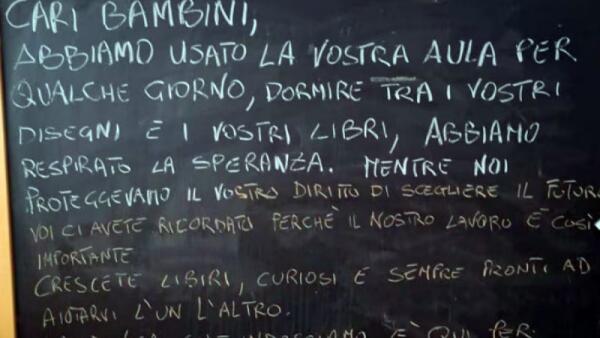 CARI BAMBINI,
ABBIAMO USATO LA VOSTRA AULA PER
QUALCHE GIORNO, DORMIRE TRA I VOSTRI
DISEGNI E I VOSTRI LIBRI, ABBIAMO
RESPIRATO LA SPERANZA. MENTRE NOI
PROTEGGEVAMO IL VOSTRO DIRITTO DI SCEGLIERE IL FUTURO
VOI CI AVETE RICORDATO PERCHÈ IL NOSTRO LAVORO È COSÌ
IMPORTANTE
CRESCETE LIBIRI, CURIOSI E SEMPRE PRONTI AD
AIUTARVI L'UN L'ALTRO.
È QUI PER